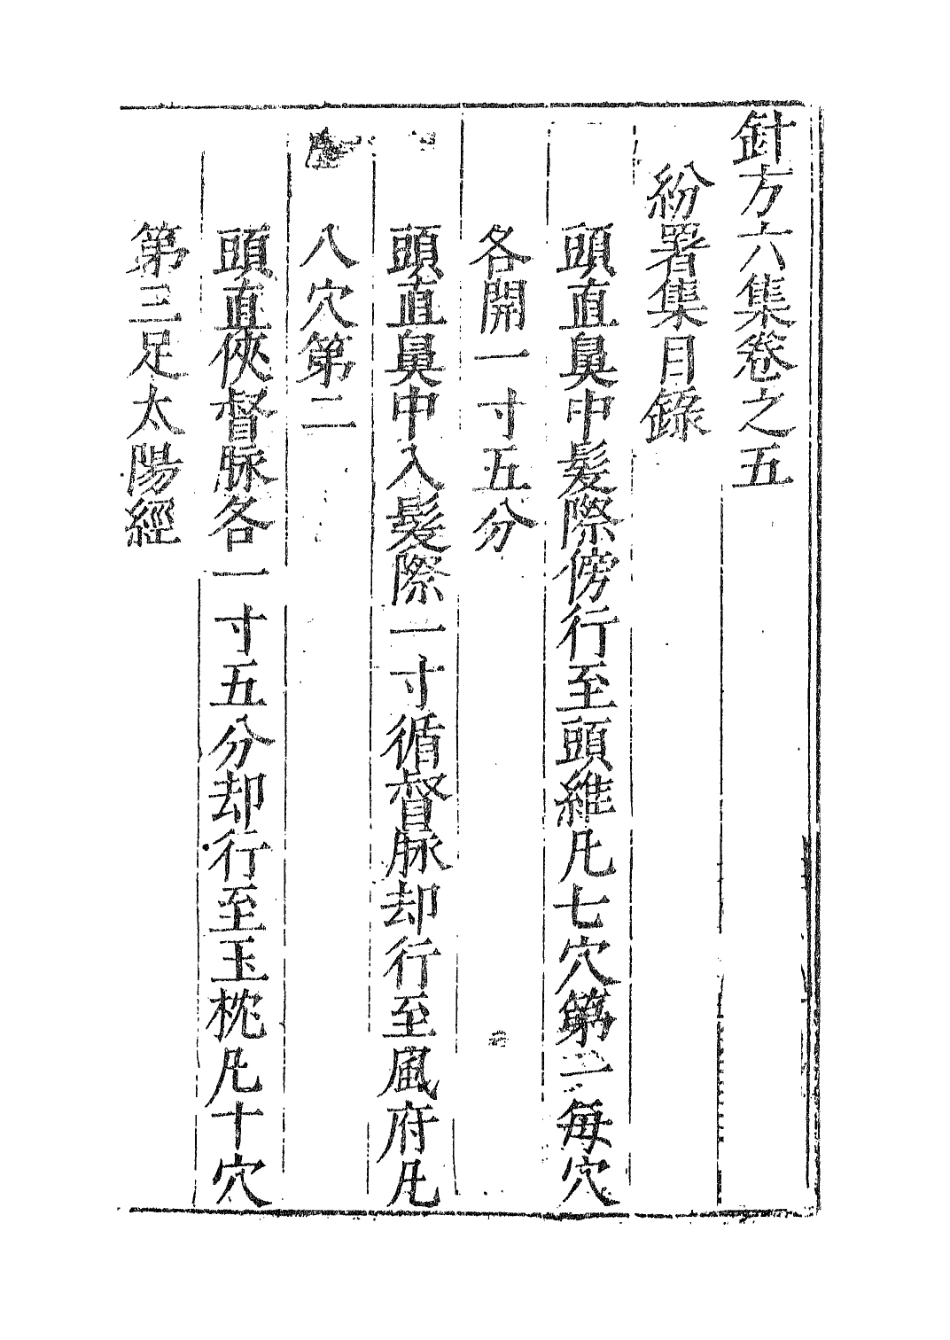 針方六集卷之五
紛署集目錄
頭直鼻中髮際傍行至頭維凡七穴第一每穴
各開一寸五分
頭直鼻中入髮際一寸循督脉却行至風府凡
八穴第二
頭直俠督脉各一寸五分却行至玉枕凡十穴
第三足太陽經